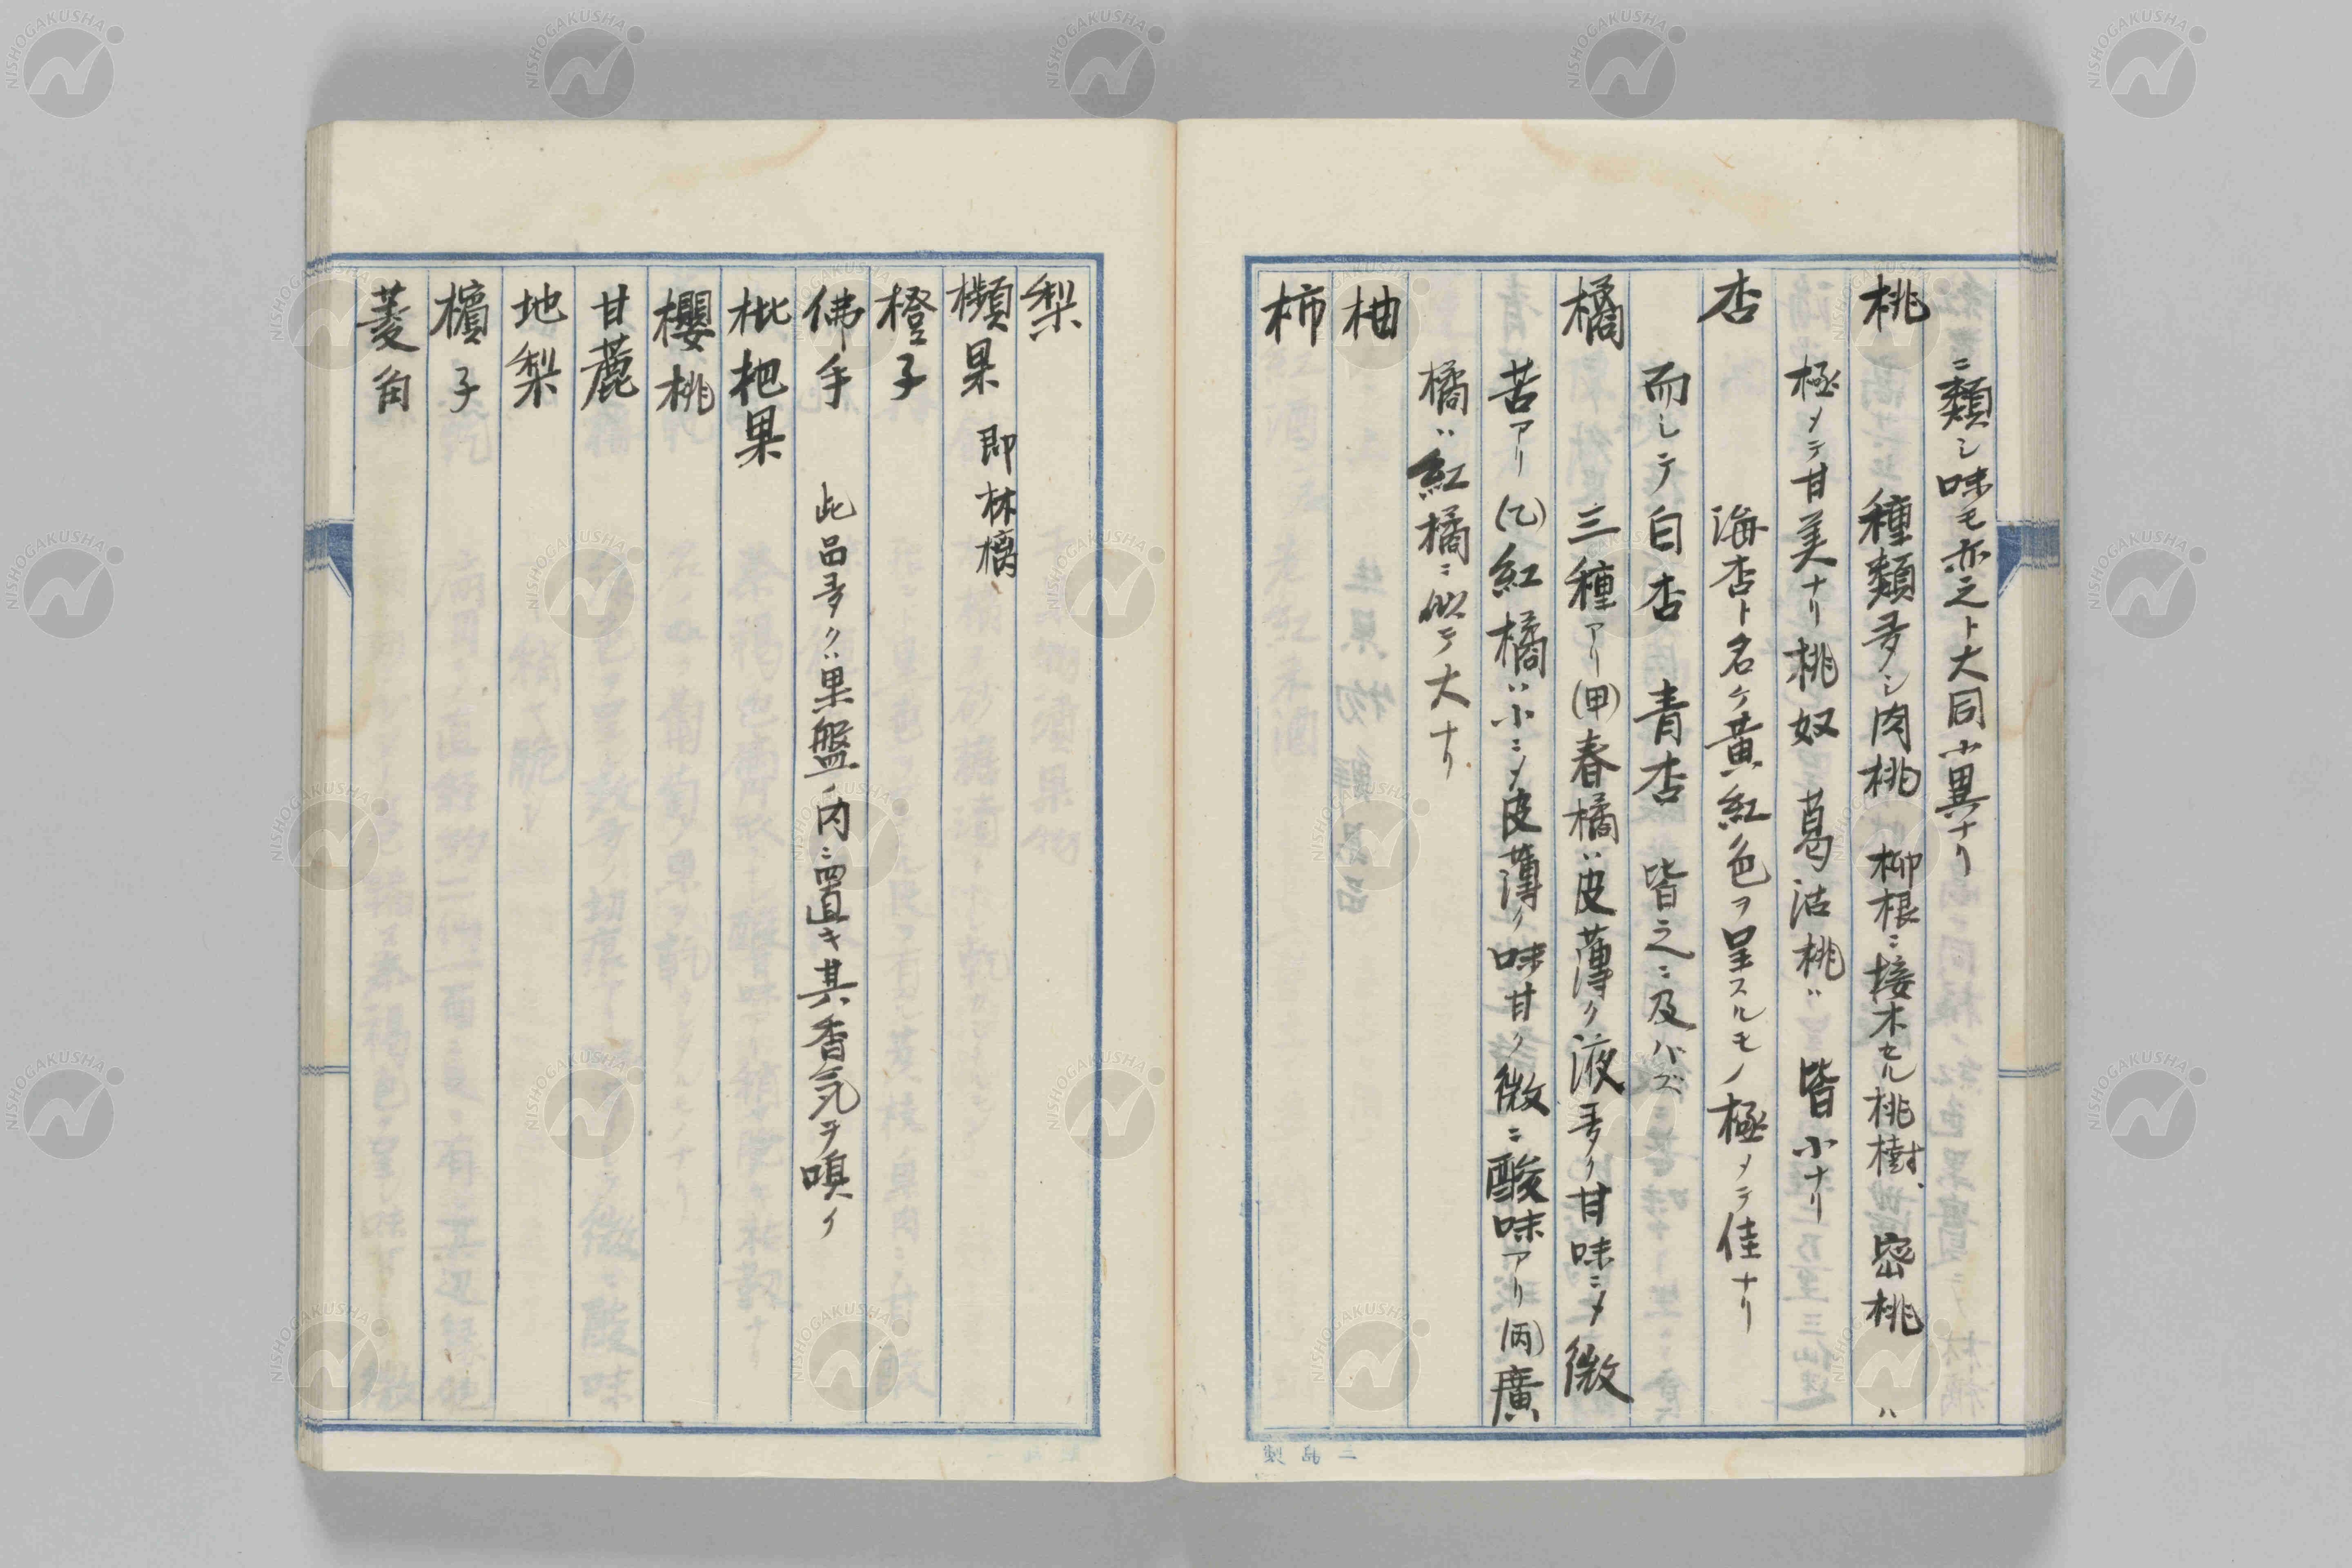 ニ類シ味モ亦之ト大同小異ナリ
桃 種類多シ肉桃 柳根ニ接木セル桃樹、密桃ハ
極メテ甘美ナリ桃奴 葛沽桃ハ 皆小ナリ
杏 海杏ト名ケ黄紅色ヲ呈スルモノ極メテ佳ナリ
而シテ白杏 青杏 皆之ニ及バズ
橘 三種アリ(甲)春橘ハ皮薄ク液多ク甘味ニメ微
苦アリ(乙)紅橘ハ小ニメ皮薄ク味甘ク微ニ酸味アリ(丙)廣
橘ハ紅橘ニ似テ大ナリ
柚
柿
梨
櫇果 即林檎
橙子
佛手 此品多クハ果盤ノ内ニ置キ其香気ヲ嗅ク
枇杷果
櫻桃
甘蔗
地梨
檳子
菱角
NISHOGAKUSHA